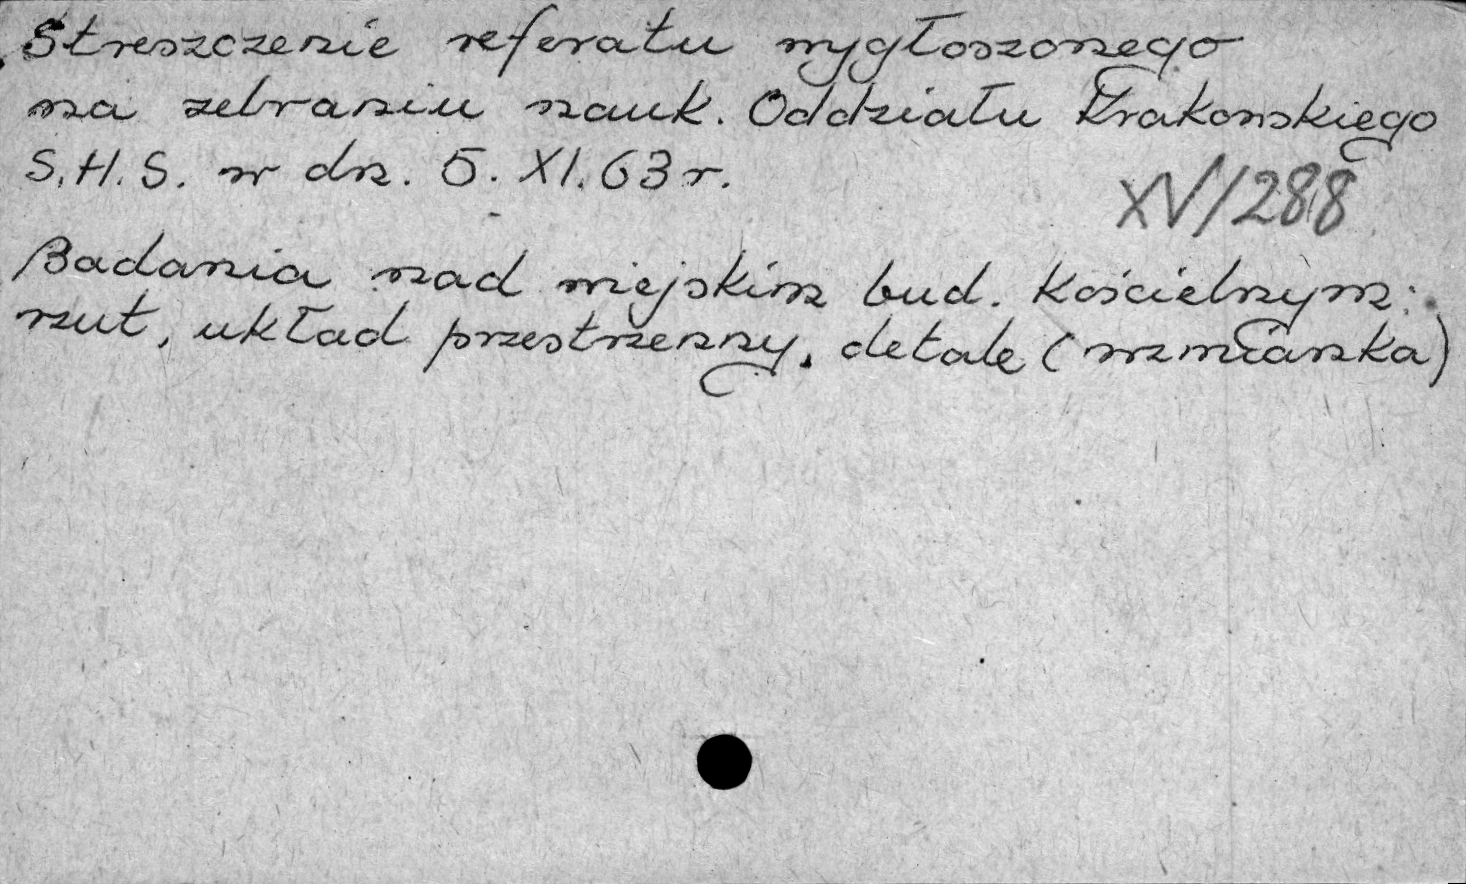 Streszczenie referatu wygłoszonego
na zebraniu nauk. Oddziału Krakowskiego
S.H.S. w dn. 5. XI. 63 r.
XV/288
Badania nad miejskim bud. Kościelnym:
rzut, układ przestrzenny, detale (wzmianka)